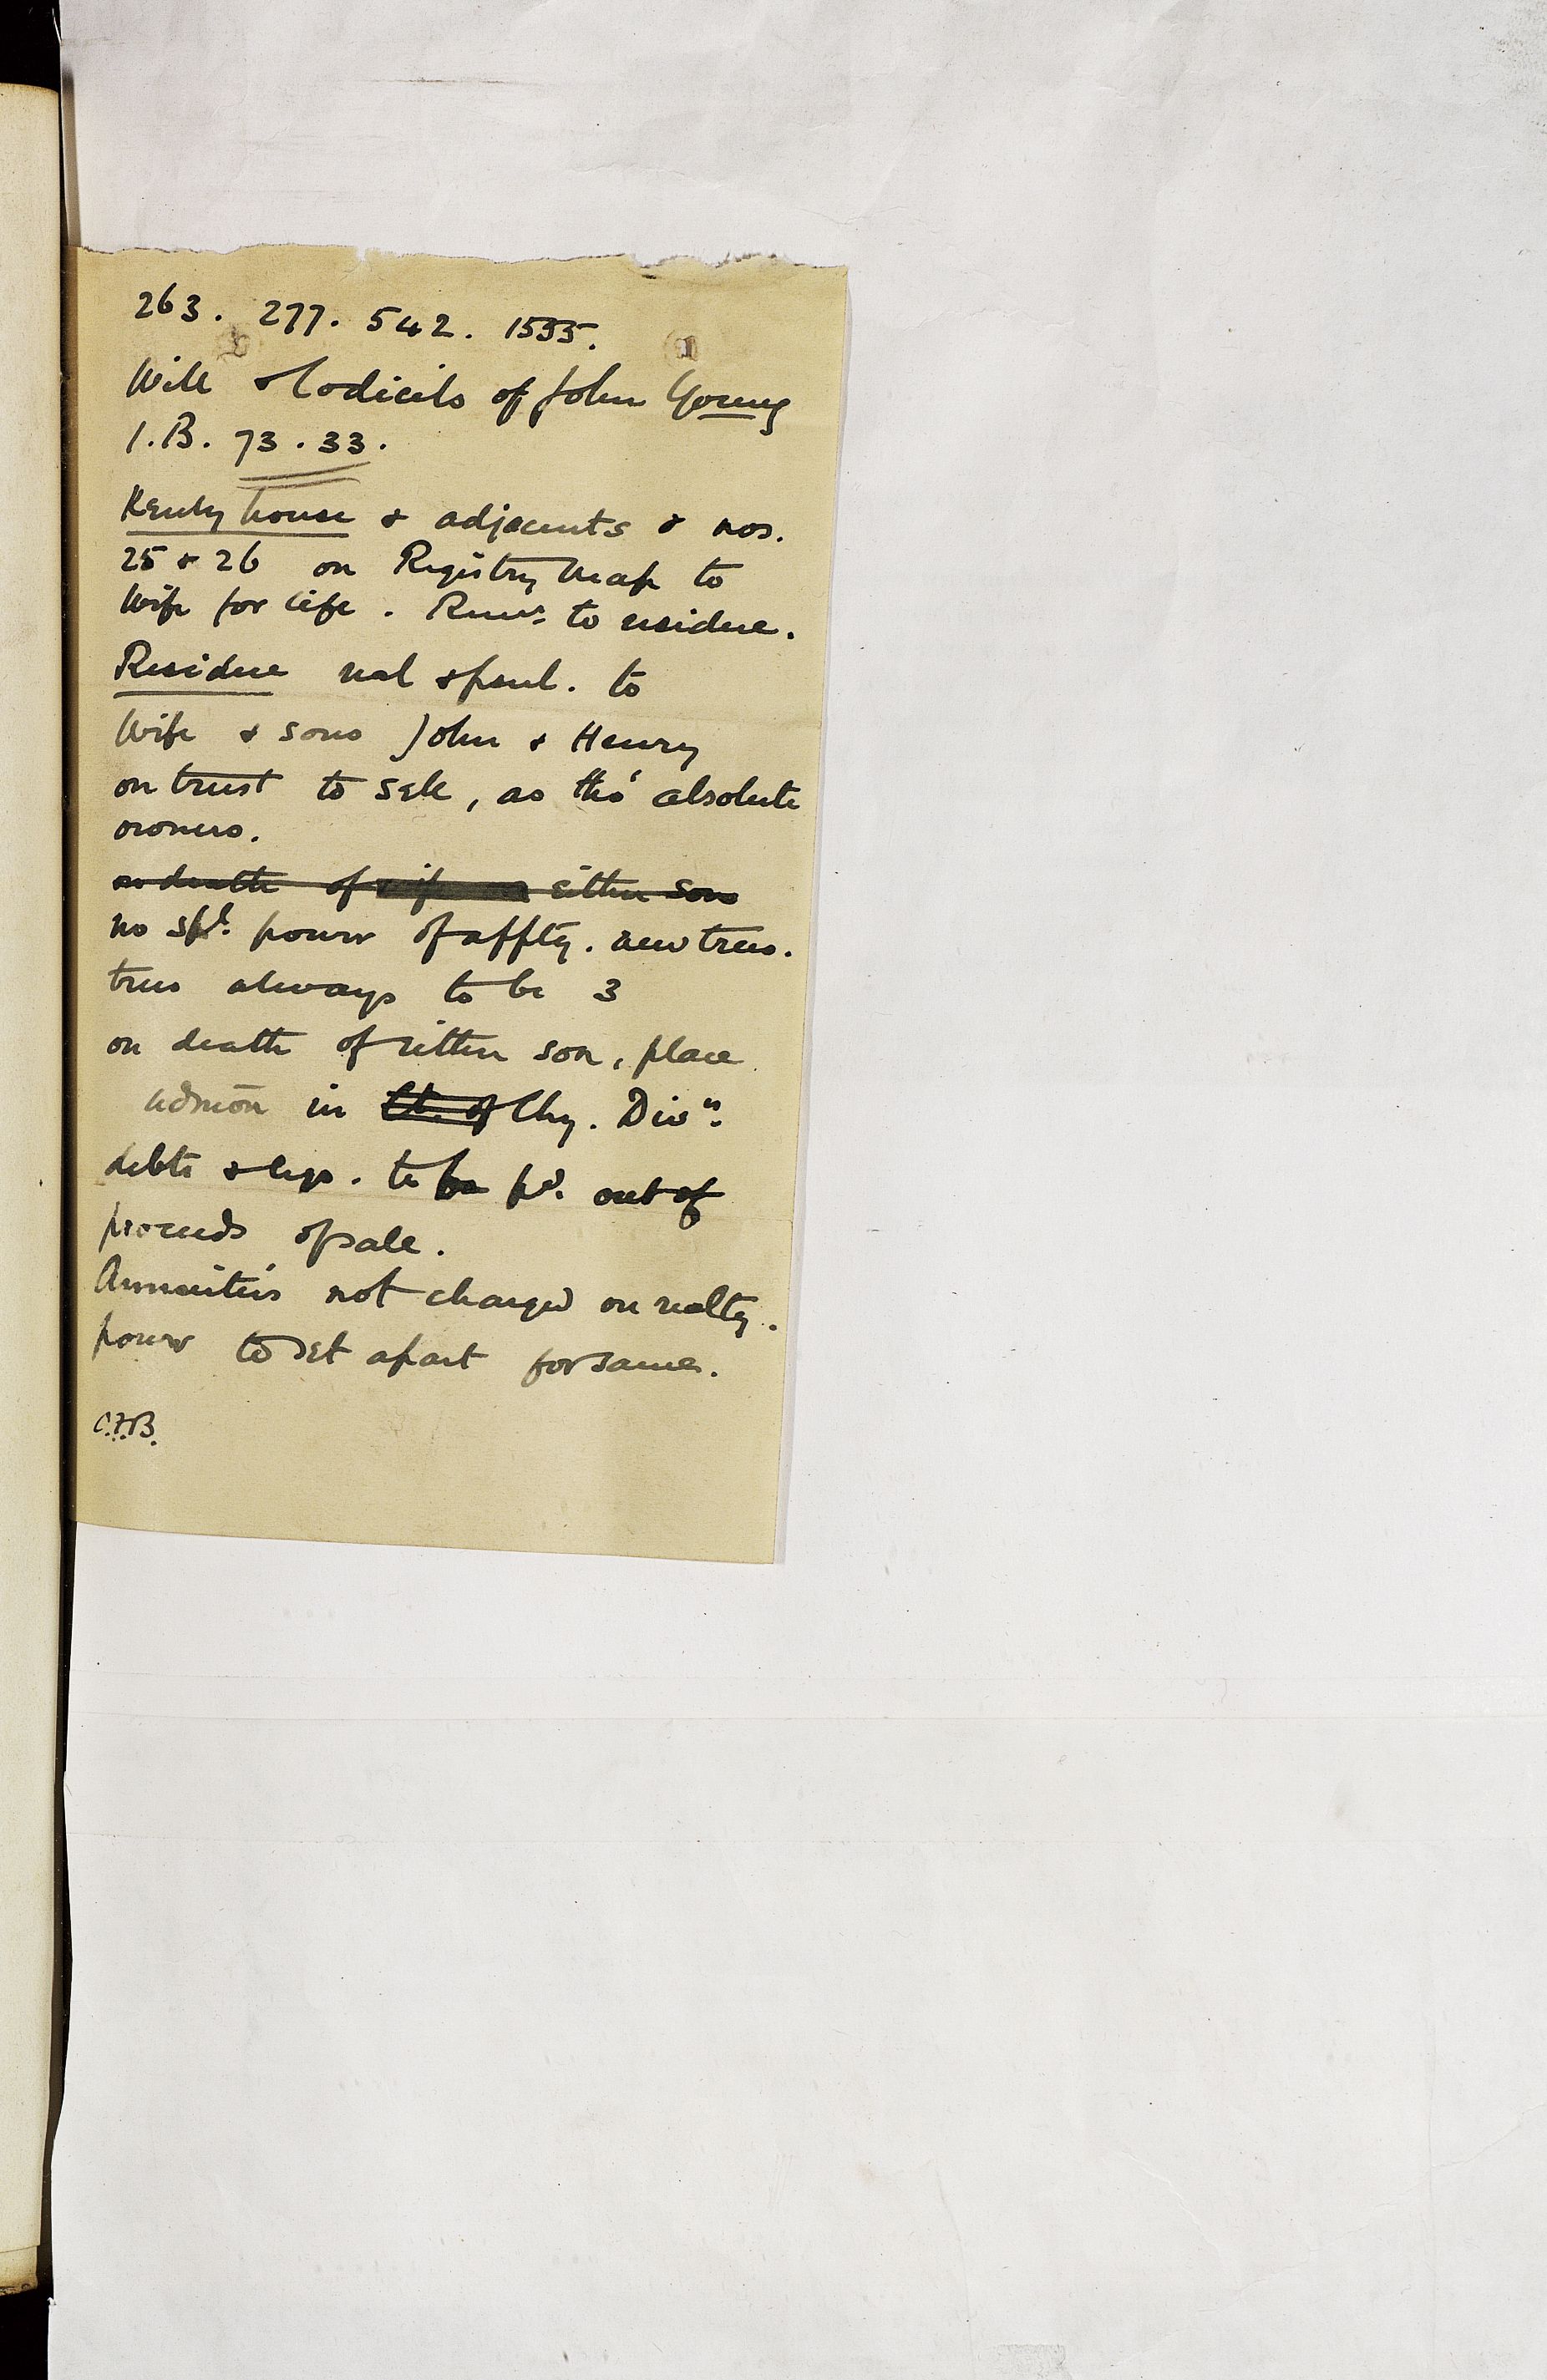 263. 277. 542. 1535.
Will & Codicils of John Young
I.B. 73.33.
Kenly house & adjacents & nos.
25 & 26 on Registry Map to
Wife for life. Remr. to residue.
Residue real & psnl. to
Wife & sons John & Henry
on trust to sell, as tho' absolute
owners.
on death of wife either son
no spl. power of apptg. new trees.
trees always to be 3
on death of either son, place
admon in Ct. of Chy. Divn.
debts & legs. to be pd. out of
proceeds of sale.
Annuities not charged on realty.
power to set apart for same.
C.F.B.